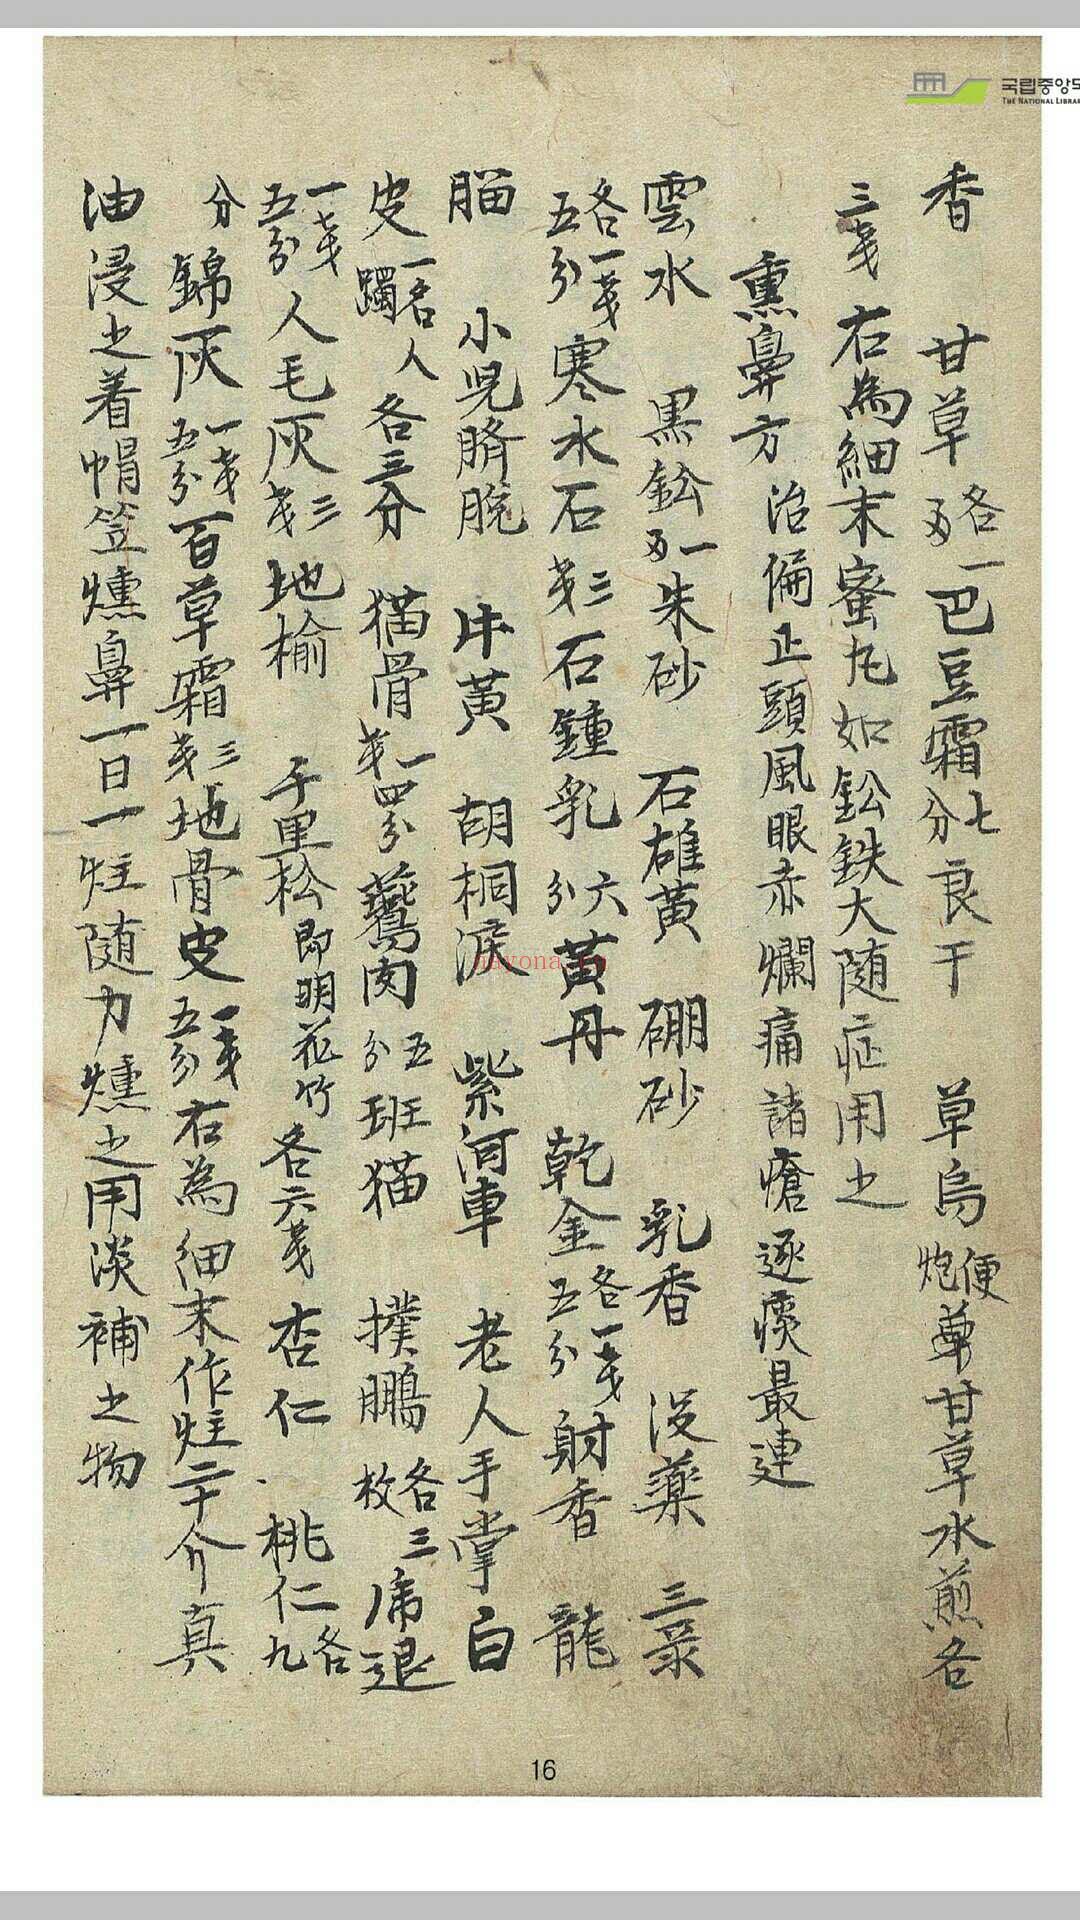 국립중앙도
THE NATIONAL LIBRAR
香 甘草 各一刃 巴豆霜 七分 良干 草烏 便炮 草甘草水煎各
三戔 右為細末蜜丸如鈆鉄大随症用之
熏鼻方 治偏正頭風眼赤爛痛諸瘡逐痰最連
雲水 黒鈆 一刃 朱砂 石雄黄 硼砂 乳香 没薬 三
各一戔五分 寒水石 三戔 石鍾乳 六分 黄丹 乾金 各一戔五分 射香 龍
腦 小児臍脫 牛黄 胡桐淚 紫河車 老人手掌白
皮 一名人躅 各三分 猫骨 一戔四分 肉 五分 班猫 撲鵬 各三枚 退
一戔五分 人毛灰 三戔 地榆 千里松 即明花竹 各六戔 杏仁 桃仁 各九
分 錦灰 一戔五分 百草霜 三戔 地骨皮 一戔五分 右為細末作炷二十介真
油浸之着帽笠燻鼻一日一炷随力燻之用淡補之物
16
nayona.cn